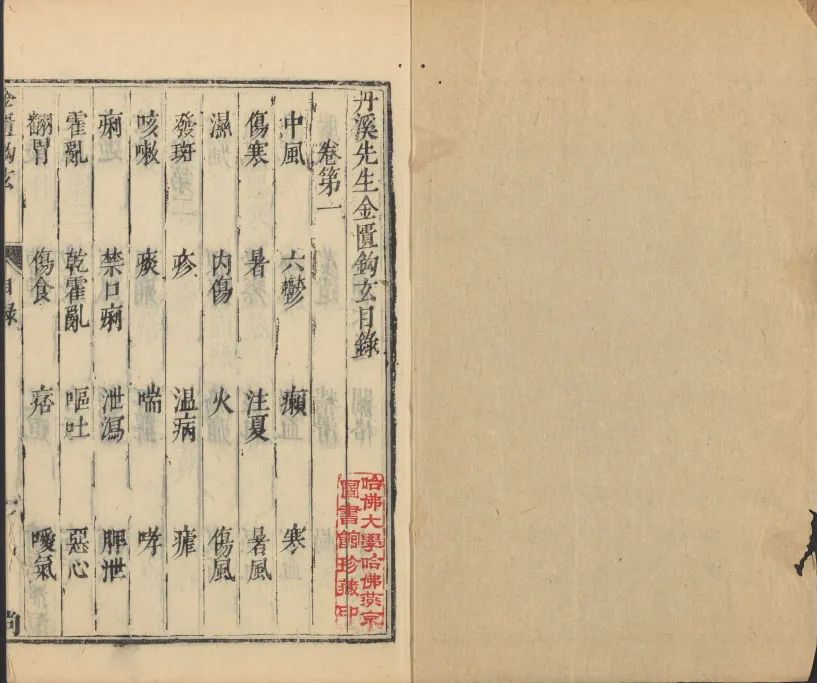 丹溪先生金匱鉤玄目錄
卷第一
中風 六鬱 癩 寒
傷寒 暑 注夏 暑風
濕 內傷 火 傷風
發斑 疹 温病 瘧
咳嗽 痰 喘 哮
痢 禁口痢 泄瀉 脾泄
霍亂 乾霍亂 嘔吐 惡心
翻胃 傷食 痞 噯氣
金匱鉤玄 目錄
哈佛大學哈佛燕京
圖書館珍藏印